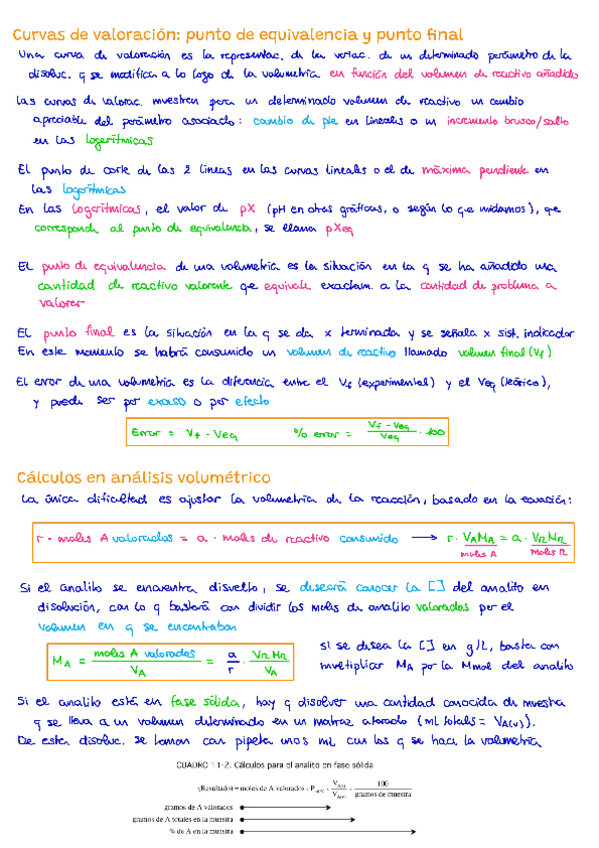 Curvas de valoración: punto de equivalencia y punto final
Una curva de valoración es la representac. de la variac. de un determinado parámetro de la
disoluc. q se modifica a lo largo de la volumetría en función del volumen de reactivo añadido
Las curvas de valorac. muestran para un determinado volumen de reactivo un cambio
apreciable del parámetro asociado: cambio de pte en lineales o un incremento brusco/salto
en las logarítmicas
El punto de corte de las 2 líneas en las curvas lineales o el de máxima pendiente en
las logarítmicas
En las logarítmicas, el valor de pX (pH en otras gráficas, o según lo que midamos), que
corresponde al punto de equivalencia, se llama pXeq
El punto de equivalencia de una volumetría es la situación en la q se ha añadido una
cantidad de reactivo valorante que equivale exactam. a la cantidad de problema a
valorar
El punto final es la situación en la q se da x terminada y se señala x sist. indicador
En este momento se habrá consumido un volumen de reactivo llamado volumen final (Vf)
El error de una volumetría es la diferencia entre el Vf (experimental) y el Veq (teórico),
y puede ser por exceso o por defecto
Error = Vf - Veq % error = Vf - Veq / Veq · 100
Cálculos en análisis volumétrico
La única dificultad es ajustar la volumetría de la reacción, basado en la ecuación:
r · moles A valorados = a · moles de reactivo consumido → r · VAMA = a · VRMR
moles A moles R
Si el analito se encuentra disuelto, se deseará conocer la [] del analito en
disolución, con lo q bastará con dividir los moles de analito valorados por el
volumen en q se encontraban
MA = moles A valorados / VA = a / r · VR MR / VA
si se desea la [] en g/L, basta con
multiplicar MA por la Mmol del analito
Si el analito está en fase sólida, hay q disolver una cantidad conocida de muestra
q se lleva a un volumen determinado en un matraz aforado (mL totales = VA(V)).
De esta disoluc. se toman con pipeta unos mL con los q se hace la volumetría
CUADRO 11-2. Cálculos para el analito en fase sólida
(Resultado) = moles de A valorados · · 100 / gramos de muestra
gramos de A valorados
gramos de A totales en la muestra
% de A en la muestra